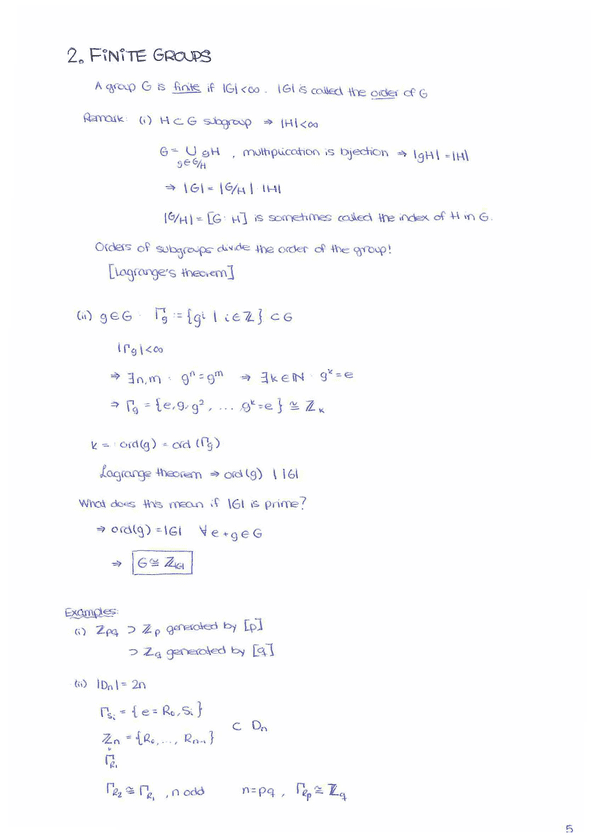 2. FINITE GROUPS
A group G is finite if |G|<∞. |G| is called the order of G
Remark: (i) H⊂G subgroup ⇒ |H|<∞
G = ∪ gH , multiplication is bijection ⇒ |gH| = |H|
g∈G/H
⇒ |G| = |G/H| |H|
|G/H| = [G:H] is sometimes called the index of H in G.
Orders of subgroups divide the order of the group!
[Lagrange's theorem]
(ii) g∈G : Γg := {gⁱ | i∈ℤ} ⊂ G
|Γg|<∞
⇒ ∃n,m : gⁿ = gᵐ ⇒ ∃k∈ℕ : gᵏ = e
⇒ Γg = {e, g, g², ... gᵏ = e} ≅ ℤk
k =: ord(g) = ord(Γg)
Lagrange theorem ⇒ ord(g) | |G|
What does this mean if |G| is prime?
⇒ ord(g) = |G| ∀ e ≠ g∈G
⇒ G ≅ ℤ|G|
Examples:
(i) ℤpq ⊃ ℤp generated by [p]
⊃ ℤq generated by [q]
(ii) |Dn| = 2n
ΓSi = {e = R₀, Si}
ℤn = {R₀, ..., Rn-1} ⊂ Dn
ΓR₁
ΓR₂ ≅ ΓR₁ , n odd n=pq , ΓRp ≅ ℤq
5